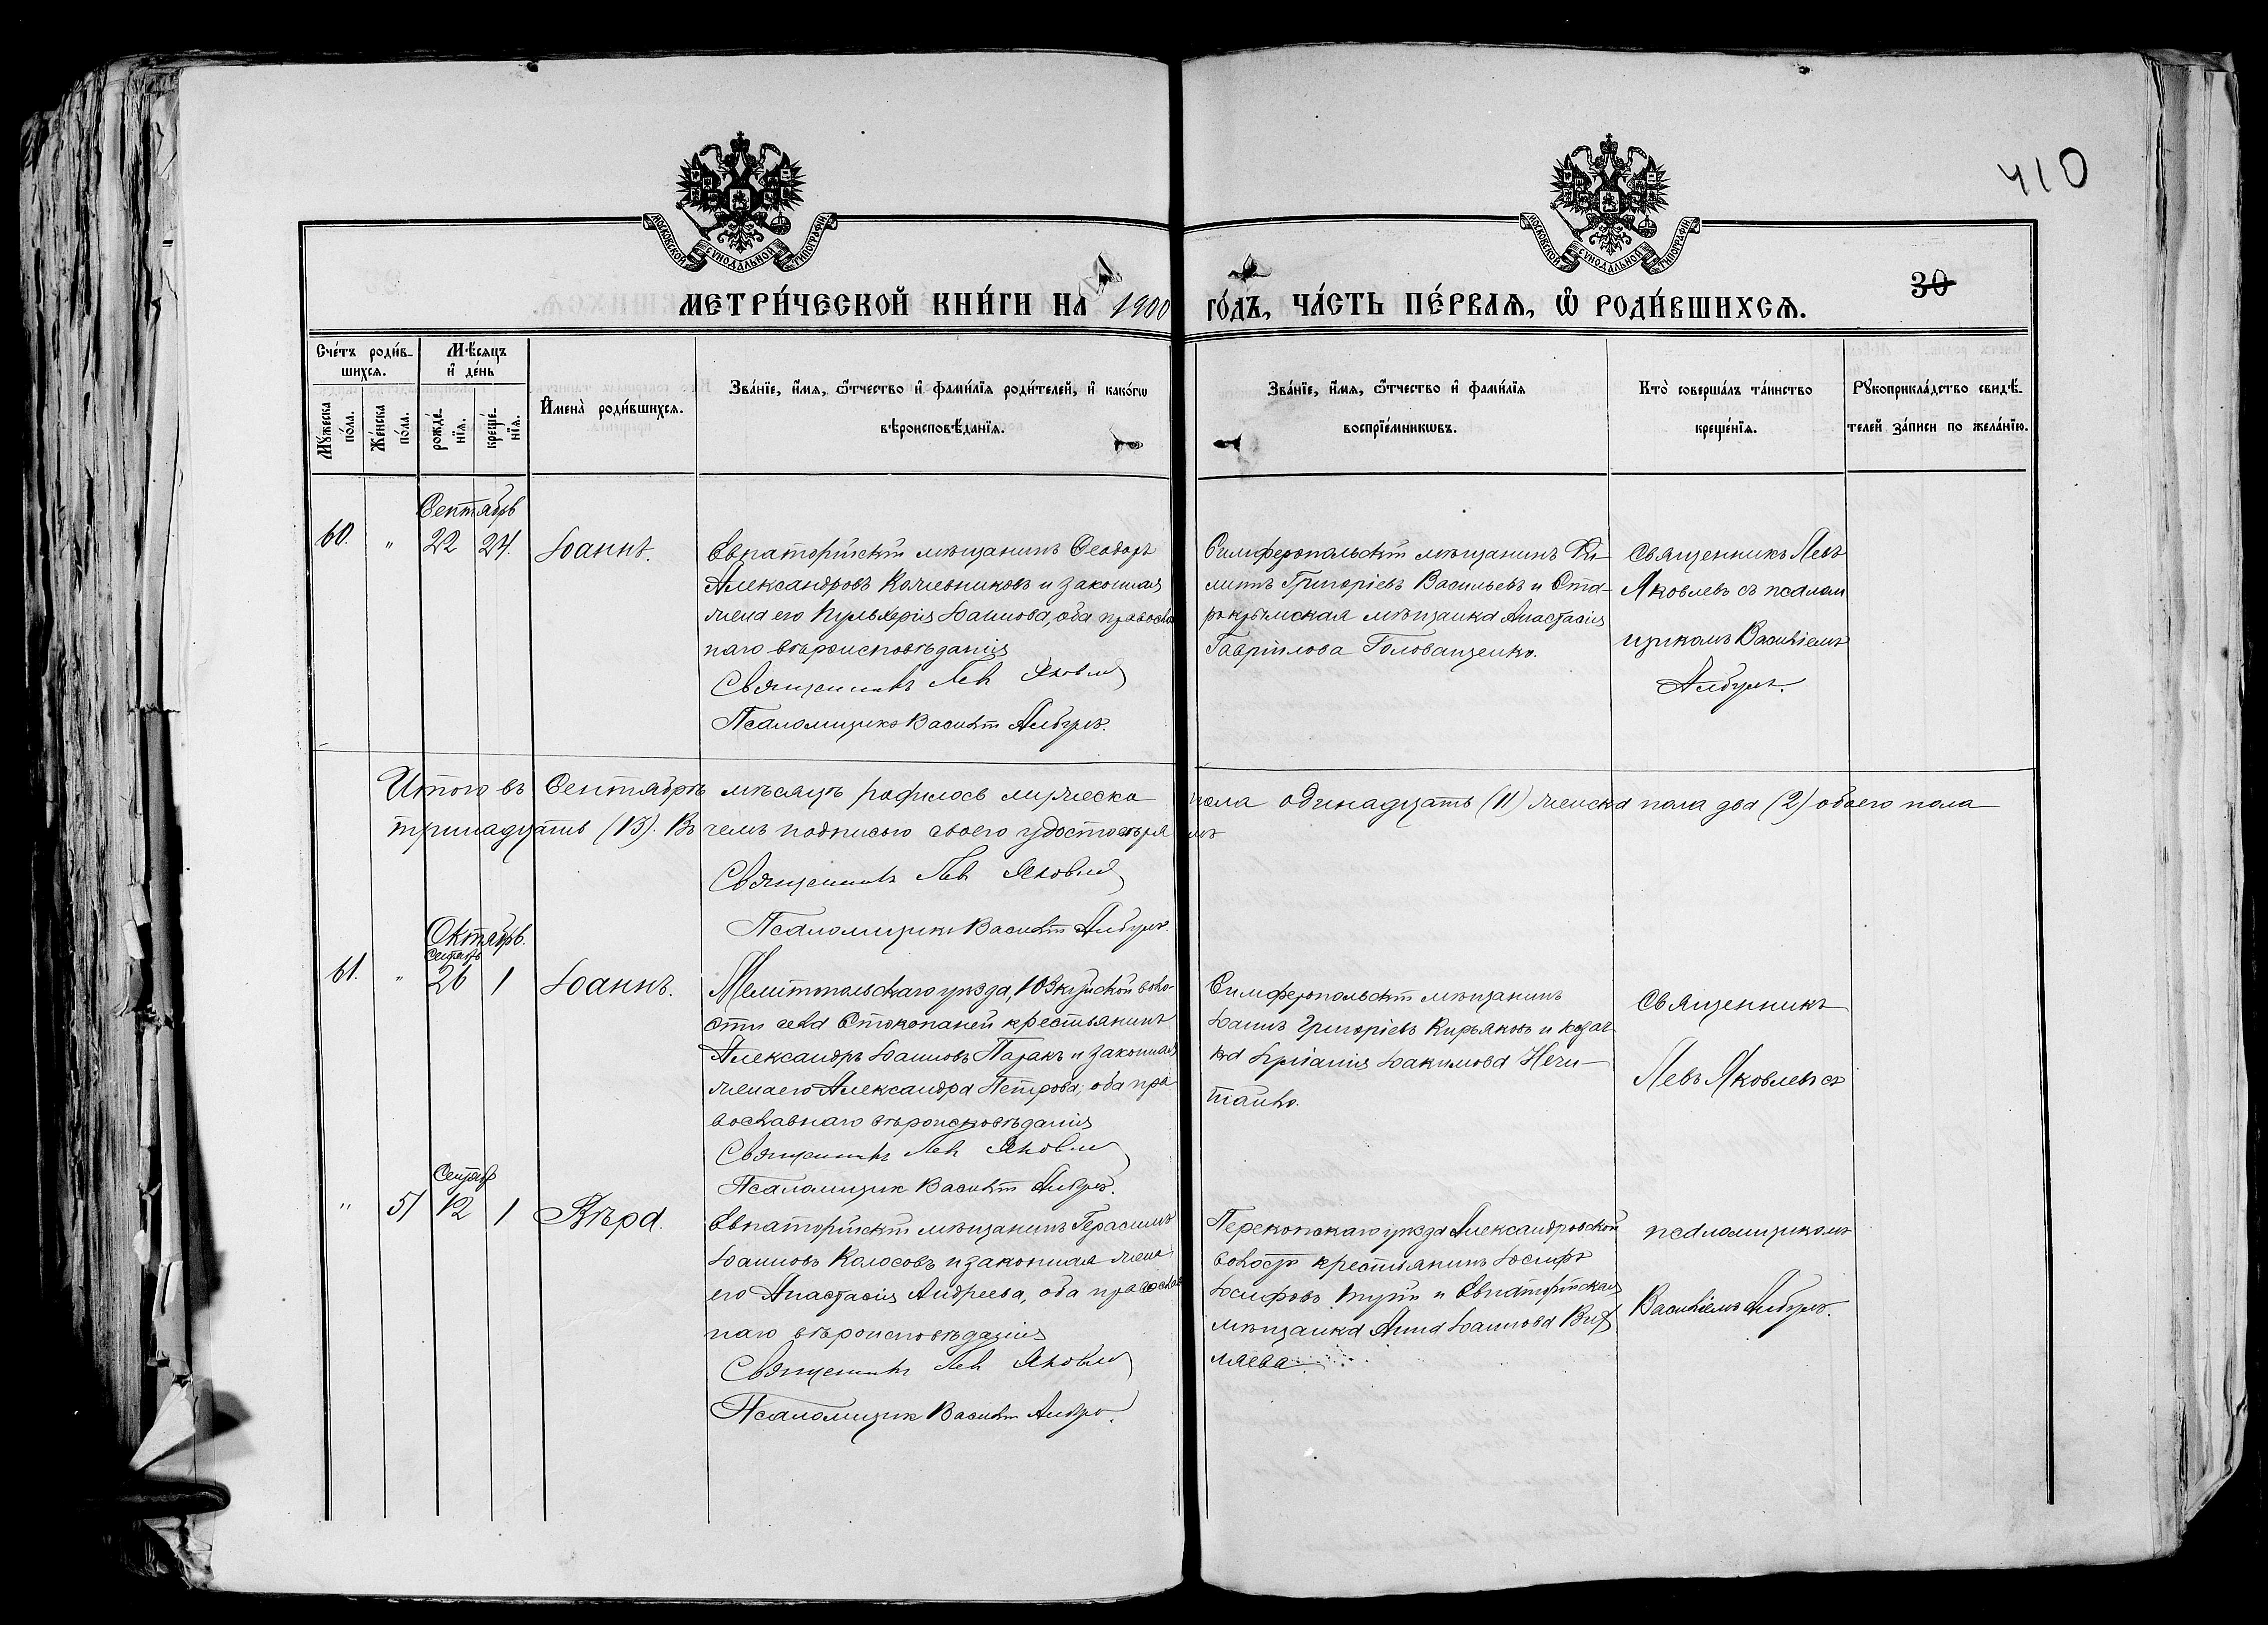 410
МОСКОВСКОЙ СУНОДАЛЬНОЙ ТИПОГРАФІИ
МОСКОВСКОЙ СУНОДАЛЬНОЙ ТИПОГРАФІИ
30
МЕТРИ́ЧЕСКОЙ КНИ́ГИ НА 1900 ГО́ДЪ, ЧА́СТЬ ПЕ́РВАѦ, Ѡ҆ РОДИ́ВШИХСѦ.
Сче́тъ роди́в-
шихсѧ.
Мꙋ́жеска
по́ла.
Же́нска
по́ла.
Мѣ́сяцъ
и҆ де́нь
рожде́-
нїѧ.
креще́-
нїѧ.
И҆мена̀ роди́вшихсѧ.
Зва́нїе, и҆́мѧ, ѻ҆́тчество и҆ фами́лїѧ роди́телей, и҆ како́гѡ
вѣроисповѣ́данїѧ.
Зва́нїе, и҆́мѧ, ѻ҆́тчество и҆ фами́лїѧ
воспрїе́мникѡвъ.
Кто̀ соверша́лъ та́инство
креще́нїѧ.
Рꙋкоприкла́дство свидѣ́-
телей за́писи по жела́нїю.
Сентябрь
60. " 22 24. Іоаннъ.
Евпаторійскій мѣщанинъ Ѳеодоръ
Александровъ Кочевниковъ и законная
жена его Пульхерія Іоаннова, оба православ
наго вѣроисповѣданія
Священникъ Лев Яковлев
Псаломщикъ Василій Албулъ.
Симферопольскій мѣщанинъ Фи-
липъ Григоріевъ Васильевъ и Ста-
рокрымская мѣщанка Анастасія
Гавріилова Голованценко.
Священникъ Левъ
Яковлевъ съ псалом
щикомъ Василіемъ
Албулъ.
Итого въ Сентябрѣ мѣсяцѣ родилось мужеска пола одинадцать (11) женска пола два (2) обоего пола
тринадцать (13). Въ чемъ подписью своего удостовѣряемъ
Священникъ Лев Яковлев
Псаломщикъ Василій Албулъ.
Октябрь.
Сентябрь
61. " 26 1 Іоаннъ.
Мелитопольскаго уѣзда, Юзкуйской воло-
сти села Стокопаней крестьянинъ
Александръ Іоанновъ Парахъ и законная
жена его Александра Петрова, оба пра
вославнаго вѣроисповѣданія
Священникъ Лев Яковлев
Псаломщикъ Василій Албулъ.
Симферопольскій мѣщанинъ
Іоаннъ Григоріевъ Кирьяковъ и козач
ка Іуліанія Іакимова Нечи-
тайло.
Священникъ
Левъ Яковлевъ съ
Сентябрь
" 51 12 1 Вѣра.
Евпаторійскій мѣщанинъ Герасимъ
Іоанновъ Колосовъ и законная жена
его Анастасія Андреева, оба православ
наго вѣроисповѣданія
Священникъ Лев Яковлев
Псаломщикъ Василій Албулъ.
Перекопскаго уѣзда Александровской
волости крестьянинъ Іосифъ
Іосифовъ и Евпаторійская
мѣщанка Анна Іоаннова
ляева.
псаломщикомъ
Василіемъ Албулъ.